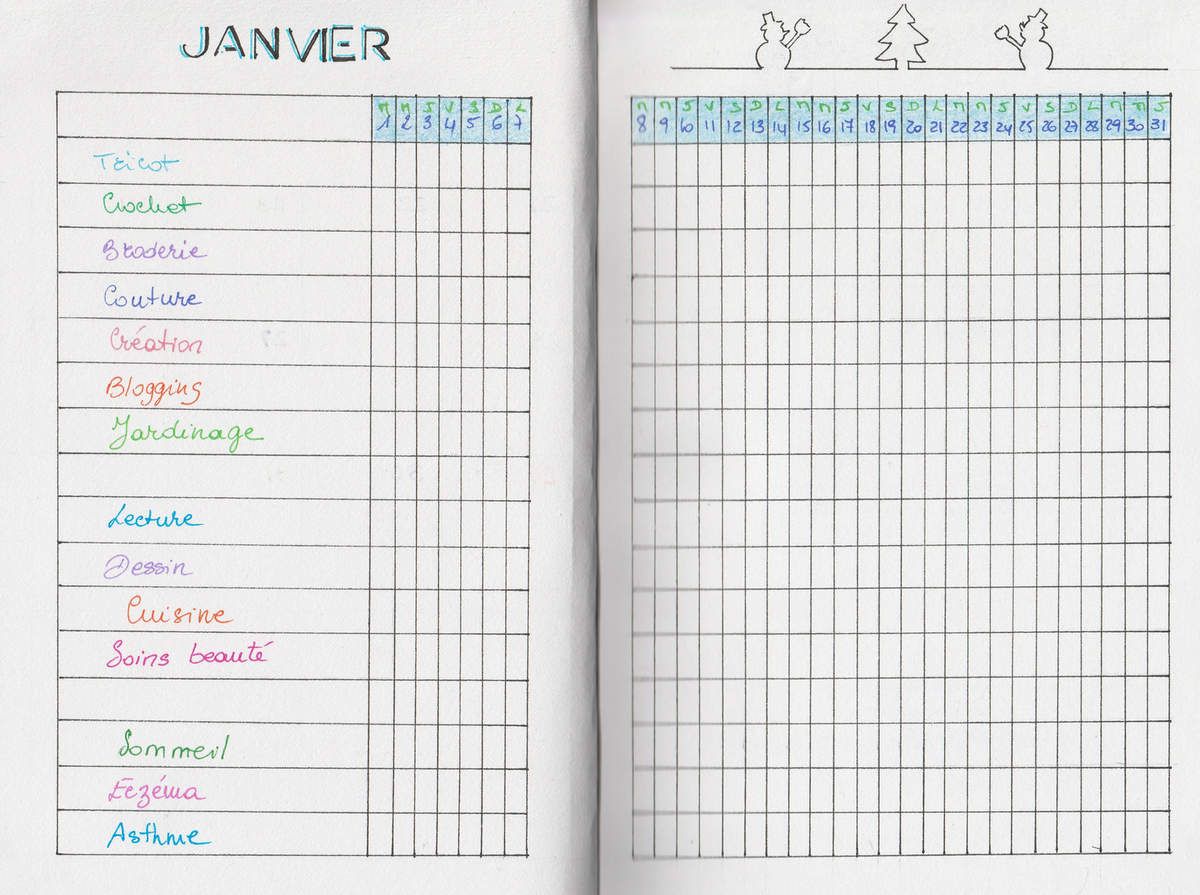 JANVIER
M M J V S D L M M J V S D L M M J V S D L M M J V S D L M M J
1 2 3 4 5 6 7 8 9 10 11 12 13 14 15 16 17 18 19 20 21 22 23 24 25 26 27 28 29 30 31
Tricot
Crochet
Broderie
Couture
Création
Blogging
Jardinage
Lecture
Dessin
Cuisine
Soins beauté
Sommeil
Eczéma
Asthme